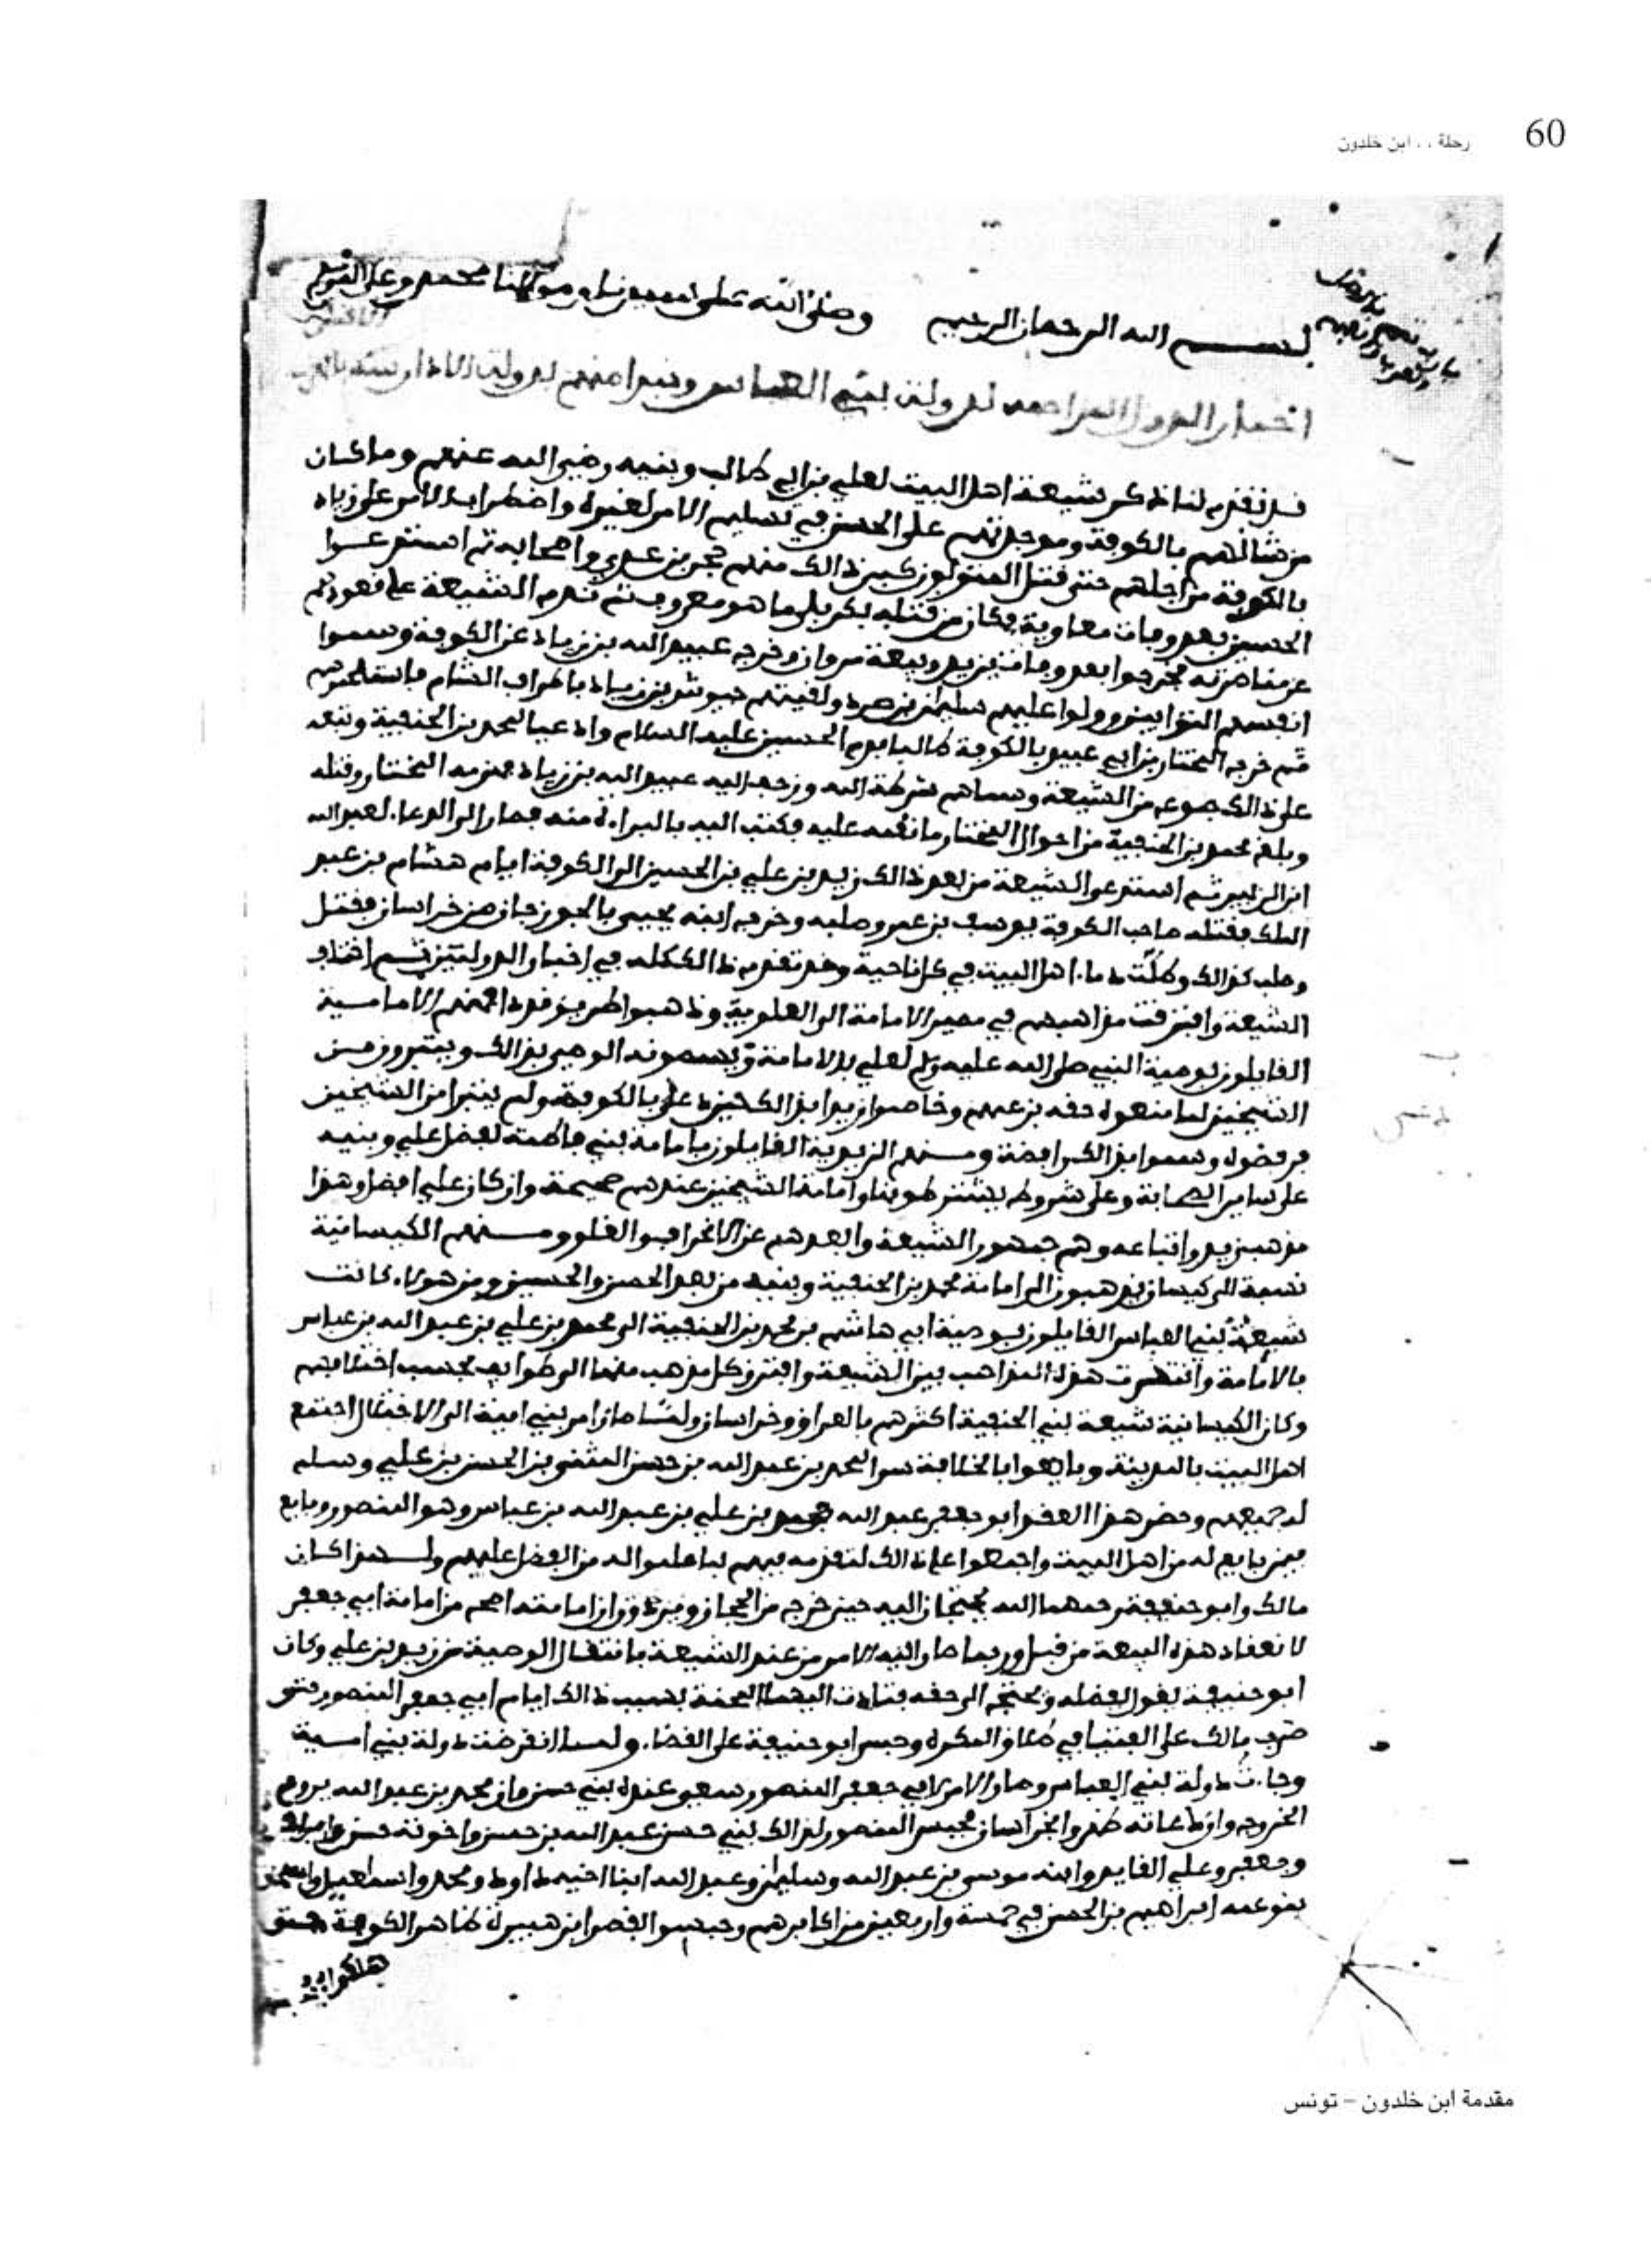 60
رحلة . . ابن خلدون
بسم الله الرحمان الرحيم وصلى الله على سيدنا ومولانا محمد وعلى
اخبار الدول المزاحمة لدولة بني العباس ونبدا منهم بدولة الادارسة بالمغرب
قد تقدم لنا ذكر شيعة اهل البيت لعلي بن ابي طالب وبنيه رضي الله عنهم وما كان
من شانهم بالكوفة وموجدتهم على الحسن في تسليم الامر لغيره واضطراب الامر على زياد
بالكوفة من اجلهم حتى قتل المتولون كبر ذالك منهم حجر بن عدي واصحابه ثم استدعوا
الحسين بعد وفاة معاوية فكان من قتله بكربلا ما هو معروف ثم ندم الشيعة على قعودهم
عن مناصرته فخرجوا بعد وفاة يزيد وبيعة مروان وخرج عبيد الله بن زياد عن الكوفة وسموا
انفسهم التوابين وولوا عليهم سليمن بن صرد ولقيتهم جيوش بن زياد باطراف الشام فاستلحموهم
ثم خرج المختار بن ابي عبيد بالكوفة طالبا بدم الحسين عليه السلام وداعيا لمحمد بن الحنفية وتبعه
على ذالك جموعه من الشيعة وسماهم شرطة الله وزحف اليه عبيد الله بن زياد فهزمه المختار وقتله
وبلغ محمد بن الحنفية من احوال المختار ما نقمه عليه فكتب اليه بالبراءة منه فصار الى الدعاء لعبد الله
ابن الزبير ثم استدعوا الشيعة من بعد ذالك زيد بن علي بن الحسين الى الكوفة ايام هشام بن عبد
الملك فقتله صاحب الكوفة يوسف بن عمر وصلبه وخرج ابنه يحيى بالجوزجان من خراسان فقتل
وصلب كذالك وطلت دماء اهل البيت في كل ناحية وقد تقدم ذالك كله في اخبار الدولتين ثم اختلف
الشيعة وافترقت مذاهبهم في مصير الامامة الى العلوية وذهبوا طرايق قددا فمنهم الامامية
القايلون بوصية النبي صلى الله عليه وسلم لعلي بالامامة ويسمونه الوصي بذالك ويتبرون من
الشيخين لما منعوه حقه بزعمهم وخاصموا زيدا بذالك حين دعا بالكوفة ومن لم يتبرا من الشيخين
رفضوه وسموا بذالك رافضة ومنهم الزيدية القايلون بامامة بني فاطمة لفضل علي وبنيه
على ساير الصحابة وعلى شروط يشترطونها وامامة الشيخين عندهم صحيحة وان كان علي افضل وهذا
مذهب زيد واتباعه وهم جمهور الشيعة وابعدهم عن الانحراف والغلو ومنهم الكيسانية
نسبة الى كيسان يذهبون الى امامة محمد بن الحنفية وبنيه من بعد الحسن والحسين ومن هولاء كانت
شيعة بني العباس القايلون بوصية ابي هاشم بن محمد بن الحنفية الى محمد بن علي بن عبد الله بن عباس
بالامامة وانتشرت هذه المذاهب بين الشيعة وافترق كل مذهب منها الى طوايف بحسب اختلافهم
وكان الكيسانية شيعة بني الحنفية اكثرهم بالعراق وخراسان ولما صار امر بني امية الى الاختلال اجتمع
اهل البيت بالمدينة وبايعوا بالخلافة سرا لمحمد بن عبد الله بن حسن المثنى بن الحسن بن علي وسلم
له جميعهم وحضر هذا العقد ابو جعفر عبد الله بن محمد بن علي بن عبد الله بن عباس وهو المنصور وبايع
فيمن بايع له من اهل البيت واجمعوا على ذالك لتقدمه فيهم لما علموا له من الفضل عليهم ولهذا كان
مالك وابو حنيفة رحمهما الله يحتجان اليه حين خرج من الحجاز ويريدون ان امامته اصح من امامة ابي جعفر
لانعقاد هذه البيعة من قبل وربما صار اليه الامر من عند الشيعة بانتقال الوصية من زيد بن علي وكان
ابو حنيفة يقول بفضله ويحتج الى حقه فتادت اليهما المحنة بسبب ذالك ايام ابي جعفر المنصور حتى
ضرب مالك على الفتيا في طلاق المكره وحبس ابو حنيفة على القضاء ولما انقرضت دولة بني امية
وجاءت دولة بني العباس وصار الامر لابي جعفر المنصور سعي عنده ببني حسن وان محمد بن عبد الله يروم
الخروج وان دعاته ظهروا بخراسان فحبس المنصور لذالك بني حسن عبد الله بن حسن واخوته حسن وابراهيم
وجعفر وعلي القايد وابنه موسى بن عبد الله وسليمن وعبد الله ابنا اخيه داود ومحمد واسماعيل واسحق
بنو عمه ابراهيم بن الحسن في خمسة واربعين من اكابرهم وحبسوا بقصر ابن هبيرة ظاهر الكوفة حتى
هلكوا في
مقدمة ابن خلدون – تونس